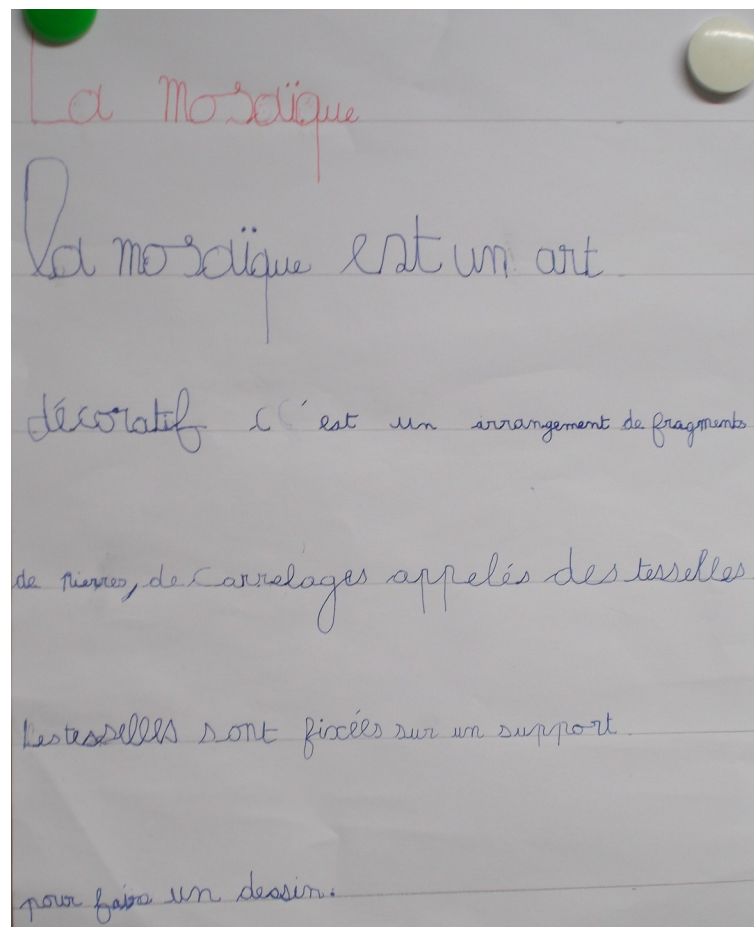 La mosaïque
La mosaïque est un art
décoratif c'est un arrangement de fragments
de pierres, de carrelages appelés des tesselles
Les tesselles sont fixées sur un support.
pour faire un dessin.